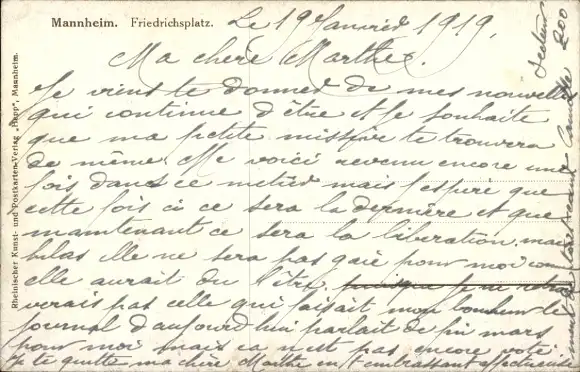 Mannheim. Friedrichsplatz.
Le 19 Janvier 1919.
Ma chère Marthe.
Je viens te donner de mes nouvelles
qui continue d'être et je souhaite
que ma petite missive te trouvera
de même. Me voici revenu encore une
fois dans ce métier mais j'espère que
cette fois ci ce sera la dernière et que
maintenant ce sera la libération mais
hélas elle ne sera pas gaie pour moi comme
elle aurait du l'être puisque je ne
verais pas celle qui faisait mon bonheur le
journal d'aujourd'hui parlait de fin mars
pour moi mais ca n'est pas encore voté
Je te quitte ma chère Marthe en t'embrassant
Secteur 200
Camille
Rheinischer Kunst- und Postkarten-Verlag „Happ", Mannheim.